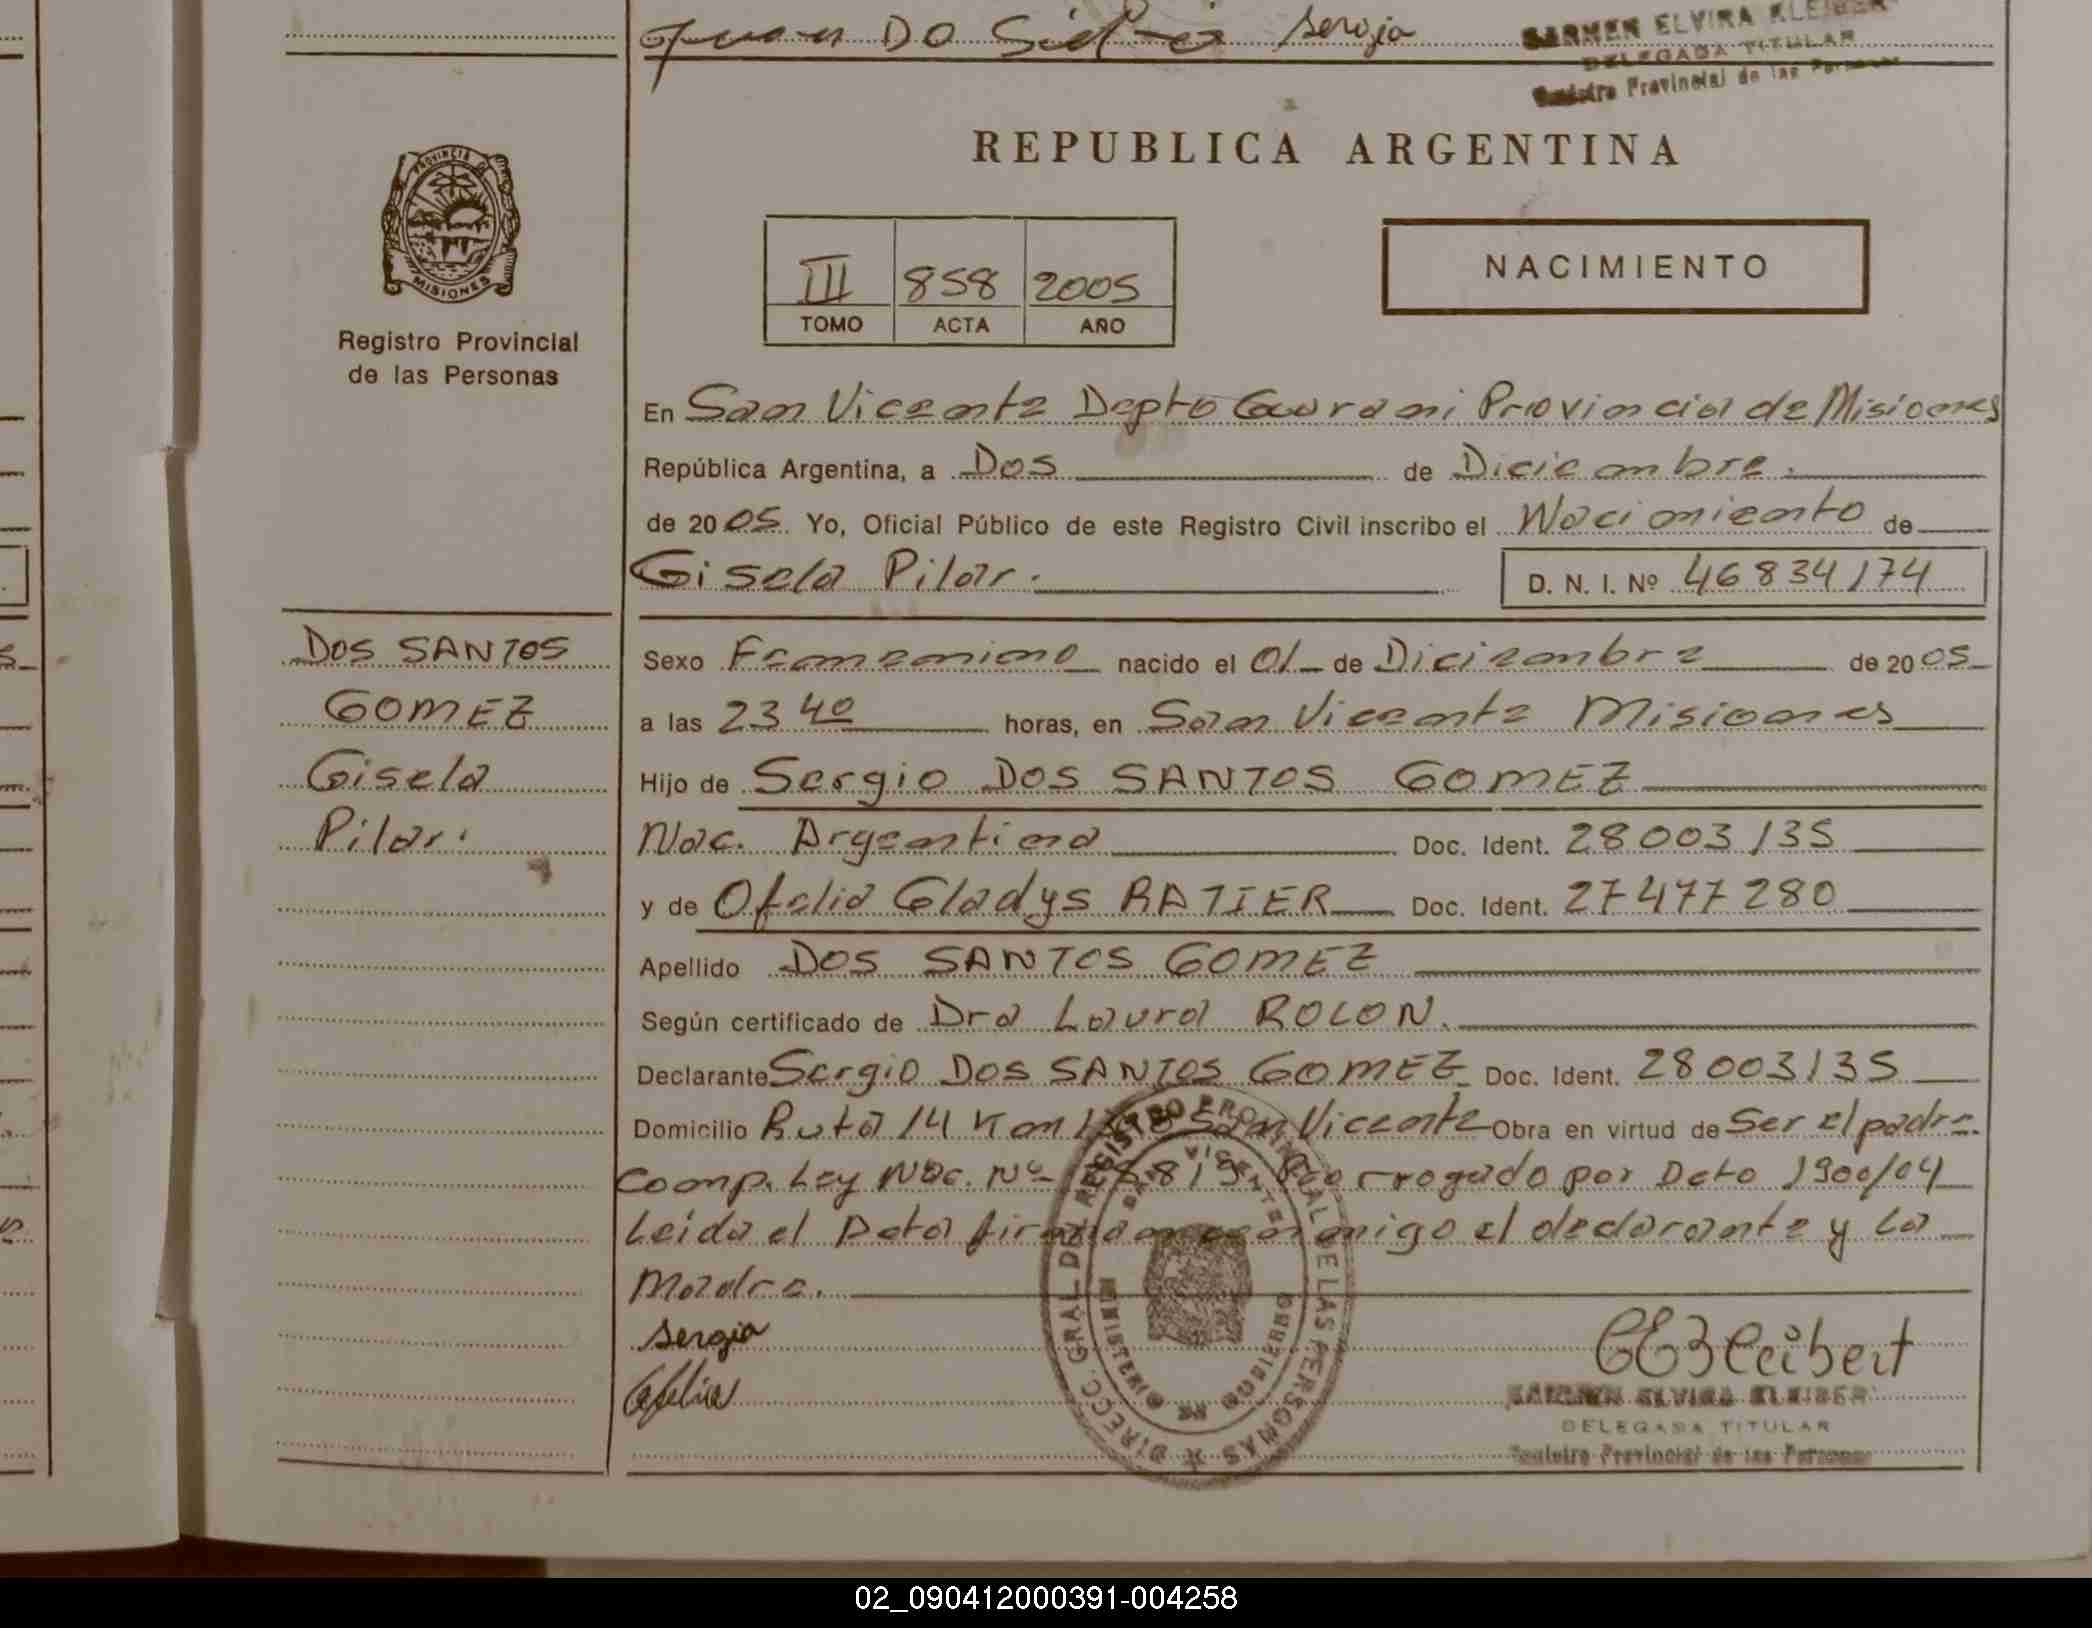 Juan Do Sergia
CARMEN ELVIRA KLEIBER
DELEGADA TITULAR
Registro Provincial de las Personas
REPUBLICA ARGENTINA
PROVINCIA DE
MISIONES
Registro Provincial
de las Personas
III 858 2005
TOMO ACTA AÑO
NACIMIENTO
En San Vicente Depto Guarani Provincia de Misiones
República Argentina, a Dos de Diciembre.
de 2005 Yo, Oficial Público de este Registro Civil inscribo el Nacimiento de
Gisela Pilar.
D. N. I. Nº 46834174
DOS SANTOS
GOMEZ
Gisela
Pilar.
Sexo Femenino nacido el 01 de Diciembre de 2005
a las 23 40 horas, en San Vicente Misiones
Hijo de Sergio DOS SANTOS GOMEZ
Nac. Argentina Doc. Ident. 28003135
y de Ofelia Gladys RATIER Doc. Ident. 27477280
Apellido DOS SANTOS GOMEZ
Según certificado de Dra Laura ROLON.
Declarante Sergio DOS SANTOS GOMEZ Doc. Ident. 28003135
Domicilio Ruta 14 Km San Vicente Obra en virtud de Ser el padre
Comp. Ley Nac. Nº Prorrogado por Dcto 1900/04
Leida el Acta firman conmigo el declarante y la
Madre.
Sergio
Ofelia
DIRECC. GRAL. DEL REGISTRO PROVINCIAL DE LAS PERSONAS
SAN VICENTE
MINISTERIO DE GOBIERNO
CEKleibert
CARMEN ELVIRA KLEIBER
DELEGADA TITULAR
Registro Provincial de las Personas
02_090412000391-004258